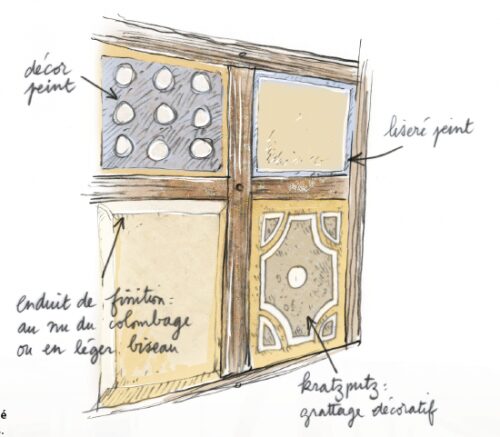 décor
peint
liseré peint
enduit de finition:
au nu du colombage
ou en léger biseau
kratzputz:
grattage décoratif
é
.